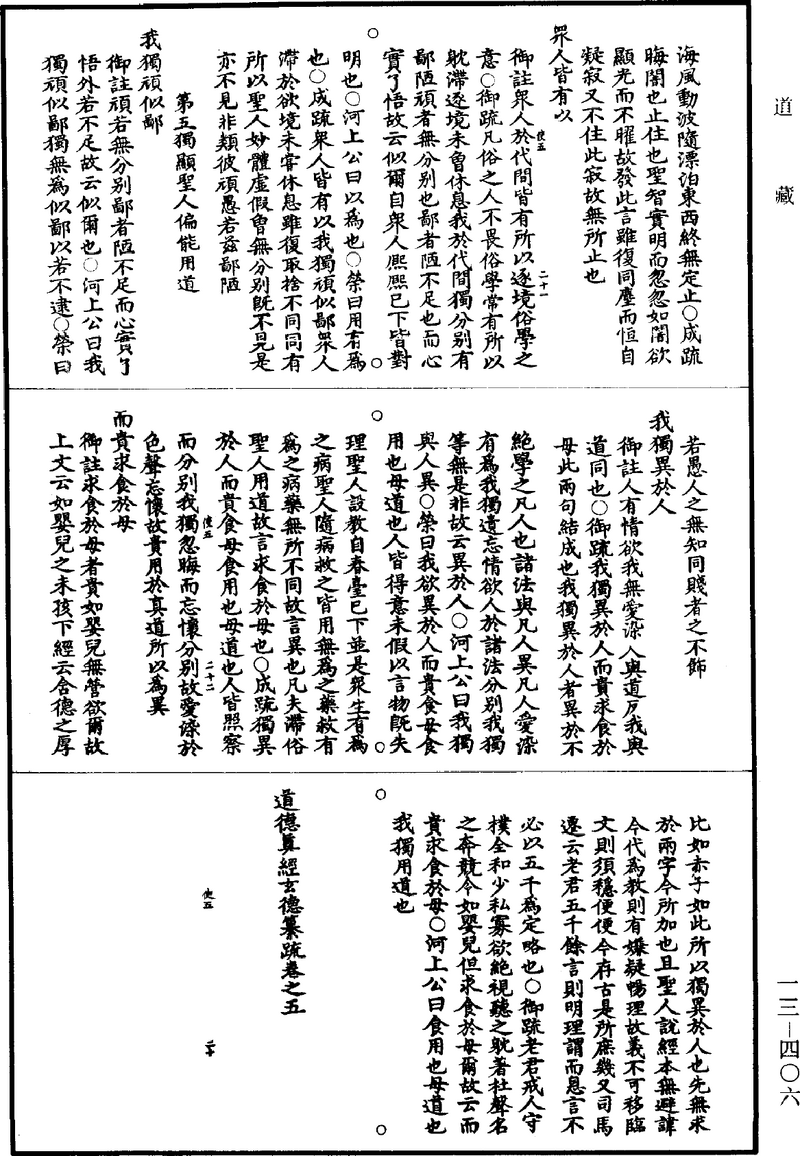 道藏
海風動波隨漂泊東西終無定止○成疏
晦闇也止住也聖智實明而忽忽如闇欲
顯光而不曜故發此言雖復同塵而恒自
疑寂又不住此寂故無所止也
眾人皆有以
御註眾人於代間皆有所以逐境俗學之
意○御疏凡俗之人不畏俗學常有所以
躭滯逐境未曾休息我於代間獨分別有
鄙陋頑者無分別也鄙者陋不足也而心
實了悟故云似爾自眾人熈熈已下皆對
明也○河上公曰以為也○榮曰用有為
也○成疏眾人皆有以我獨頑似鄙眾人
滯於欲境未甞休息雖復取捨不同同有
所以聖人妙體虛假曾無分別既不見是
亦不見非類彼頑愚若兹鄙陋
第五獨顯聖人偏能用道
我獨頑似鄙
御註頑若無分別鄙者陋不足而心實了
悟外若不足故云似爾也○河上公曰我
獨頑似鄙獨無為似鄙以若不逮○榮曰
使五
二十一
若愚人之無知同賤者之不飾
我獨異於人
御註人有情欲我無愛染人與道反我與
道同也○御疏我獨異於人而貴求食於
母此兩句結成也我獨異於人者異於不
絕學之凡人也諸法與凡人異凡人愛染
有為我獨遺忘情欲人於諸法分別我獨
等無是非故云異於人○河上公曰我獨
與人異○榮曰我欲異於人而貴食母食
用也母道也人皆得意未假以言物既失
理聖人設教自春臺已下並是眾生有為
之病聖人隨病救之皆用無為之藥救有
為之病藥無所不同故言異也凡夫滯俗
聖人用道故言求食於母也○成疏獨異
於人而貴食母食用也母道也人皆照察
而分別我獨忽晦而忘懷分別故愛染於
色聲忘懷故貴用於真道所以為異
而貴求食於母
御註求食於母者貴如嬰兒無營欲爾故
上文云如嬰兒之未孩下經云含德之厚
使五
二十二
比如赤子如此所以獨異於人也先無求
於兩字今所加也且聖人說經本無避諱
今代為教則有嫌疑暢理故義不可移臨
文則須穩便便今存古是所庶幾又司馬
遷云老君五千餘言則明理謂而息言不
必以五千為定略也○御疏老君戒人守
樸全和少私寡欲絕視聽之躭著杜聲名
之奔競今如嬰兒但求食於母爾故云而
貴求食於母○河上公曰食用也母道也
我獨用道也
道德真經玄德纂疏卷之五
使五
一三—四〇六